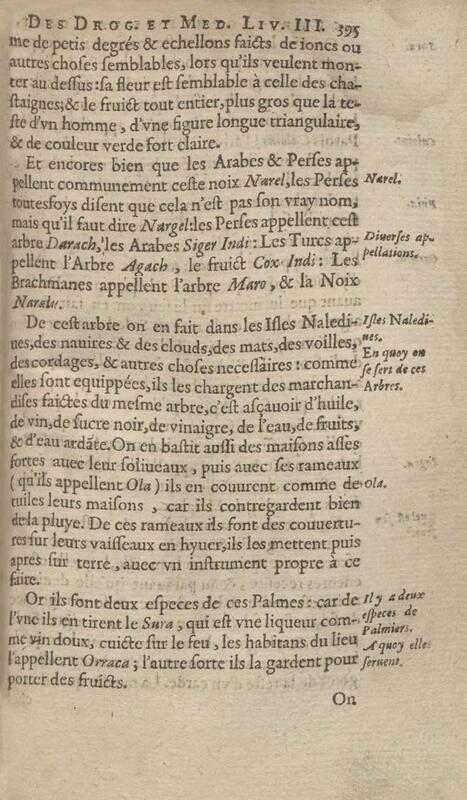 DES DROG. ET MED. LIV. III. 395
me de petis degrés & echellons faicts de ioncs ou
autres choses semblables, lors qu'ils veulent mon-
ter au dessus: sa fleur est semblable à celle des cha-
staignes; & le fruict tout entier, plus gros que la te-
ste d'vn homme, d'vne figure longue triangulaire,
& de couleur verde fort claire.
Et encores bien que les Arabes & Perses ap-
pellent communement ceste noix Narel, les Perses
Narel.
toutesfoys disent que cela n'est pas son vray nom,
mais qu'il faut dire Nargel: les Perses appellent cest
arbre Darach, les Arabes Siger Indi: Les Turcs ap-
Diuerses ap-
pellent l'Arbre Agach, le fruict Cox Indi: Les
pellations.
Brachmanes appellent l'arbre Maro, & la Noix
Narelu.
De cest arbre on en fait dans les Isles Naledi-
Isles Naledi-
ues, des nauires & des clouds, des mats, des voilles,
ues.
des cordages, & autres choses necessaires: comme
En quoy on
elles sont equippées, ils les chargent des marchan-
se sert de ces
dises faictes du mesme arbre, c'est asçauoir d'huile,
Arbres.
de vin, de sucre noir, de vinaigre, de l'eau, de fruits,
& d'eau ardāte. On en bastit aussi des maisons asses
fortes auec leur soliueaux, puis auec ses rameaux
(qu'ils appellent Ola) ils en couurent comme de
ola.
tuiles leurs maisons, car ils contregardent bien
de la pluye. De ces rameaux ils font des couuertu-
res sur leurs vaisseaux en hyuer, ils les mettent puis
apres sur terre, auec vn instrument propre à ce
faire.
Or ils font deux especes de ces Palmes: car de
Il y a deux
l'vne ils en tirent le Sura, qui est vne liqueur com-
especes de
me vin doux, cuicte sur le feu, les habitans du lieu
Palmiers.
l'appellent Orraca; l'autre sorte ils la gardent pour
A quoy elles
seruent.
porter des fruicts.
On